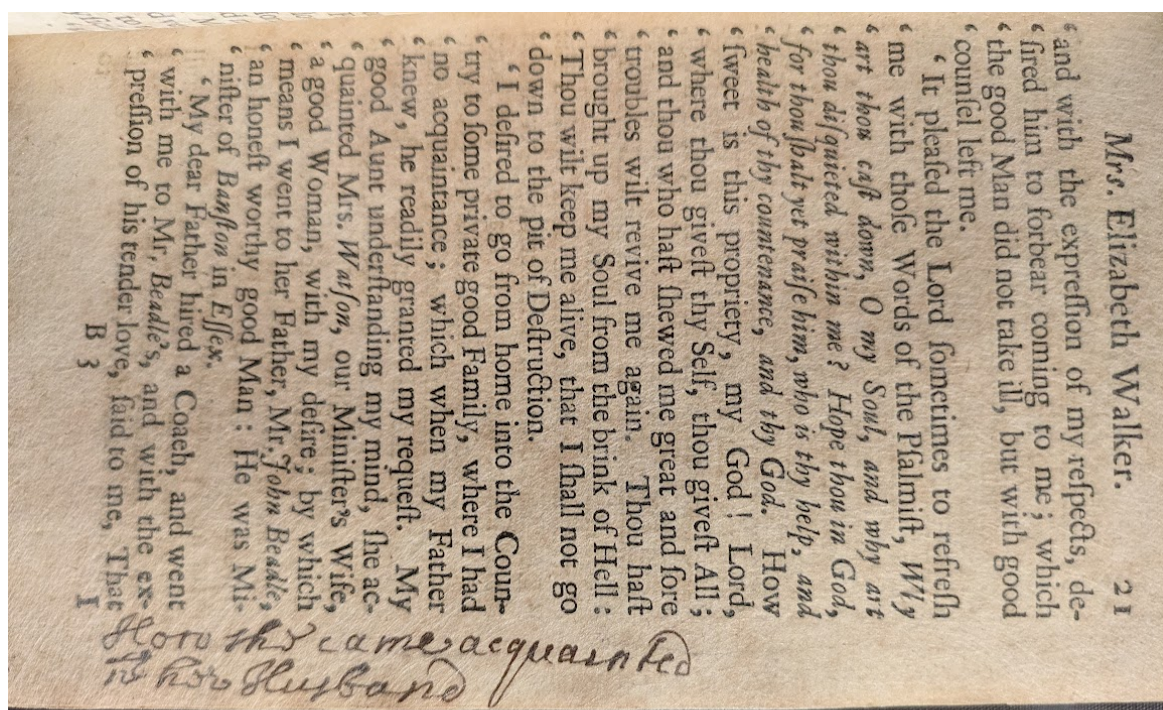 Mrs. Elizabeth Walker. 21
‘ and with the expreſſion of my reſpects, de-
‘ ſired him to forbear coming to me; which
‘ the good Man did not take ill, but with good
‘ counſel left me.
‘ It pleaſed the Lord ſometimes to refreſh
‘ me with thoſe Words of the Pſalmiſt, Why
‘ art thou caſt down, O my Soul, and why art
‘ thou diſquieted within me? Hope thou in God,
‘ for thou ſhalt yet praiſe him, who is thy help, and
‘ health of thy countenance, and thy God. How
‘ ſweet is this propriety, my God! Lord,
‘ where thou giveſt thy Self, thou giveſt All;
‘ and thou who haſt ſhewed me great and ſore
‘ troubles wilt revive me again. Thou haſt
‘ brought up my Soul from the brink of Hell:
‘ Thou wilt keep me alive, that I ſhall not go
‘ down to the pit of Deſtruction.
‘ I deſired to go from home into the Coun-
‘ try to ſome private good Family, where I had
‘ no acquaintance; which when my Father
‘ knew, he readily granted my requeſt. My
‘ good Aunt underſtanding my mind, ſhe ac-
‘ quainted Mrs. Watſon, our Miniſter's Wife,
‘ a good Woman, with my deſire; by which
‘ means I went to her Father, Mr. John Beadle,
‘ an honeſt worthy good Man: He was Mi-
‘ niſter of Banſton in Eſſex.
‘ My dear Father hired a Coach, and went
‘ with me to Mr. Beadle's, and with the ex-
‘ preſſion of his tender love, ſaid to me, That
B 3 I
How she came acquainted
with her Husband